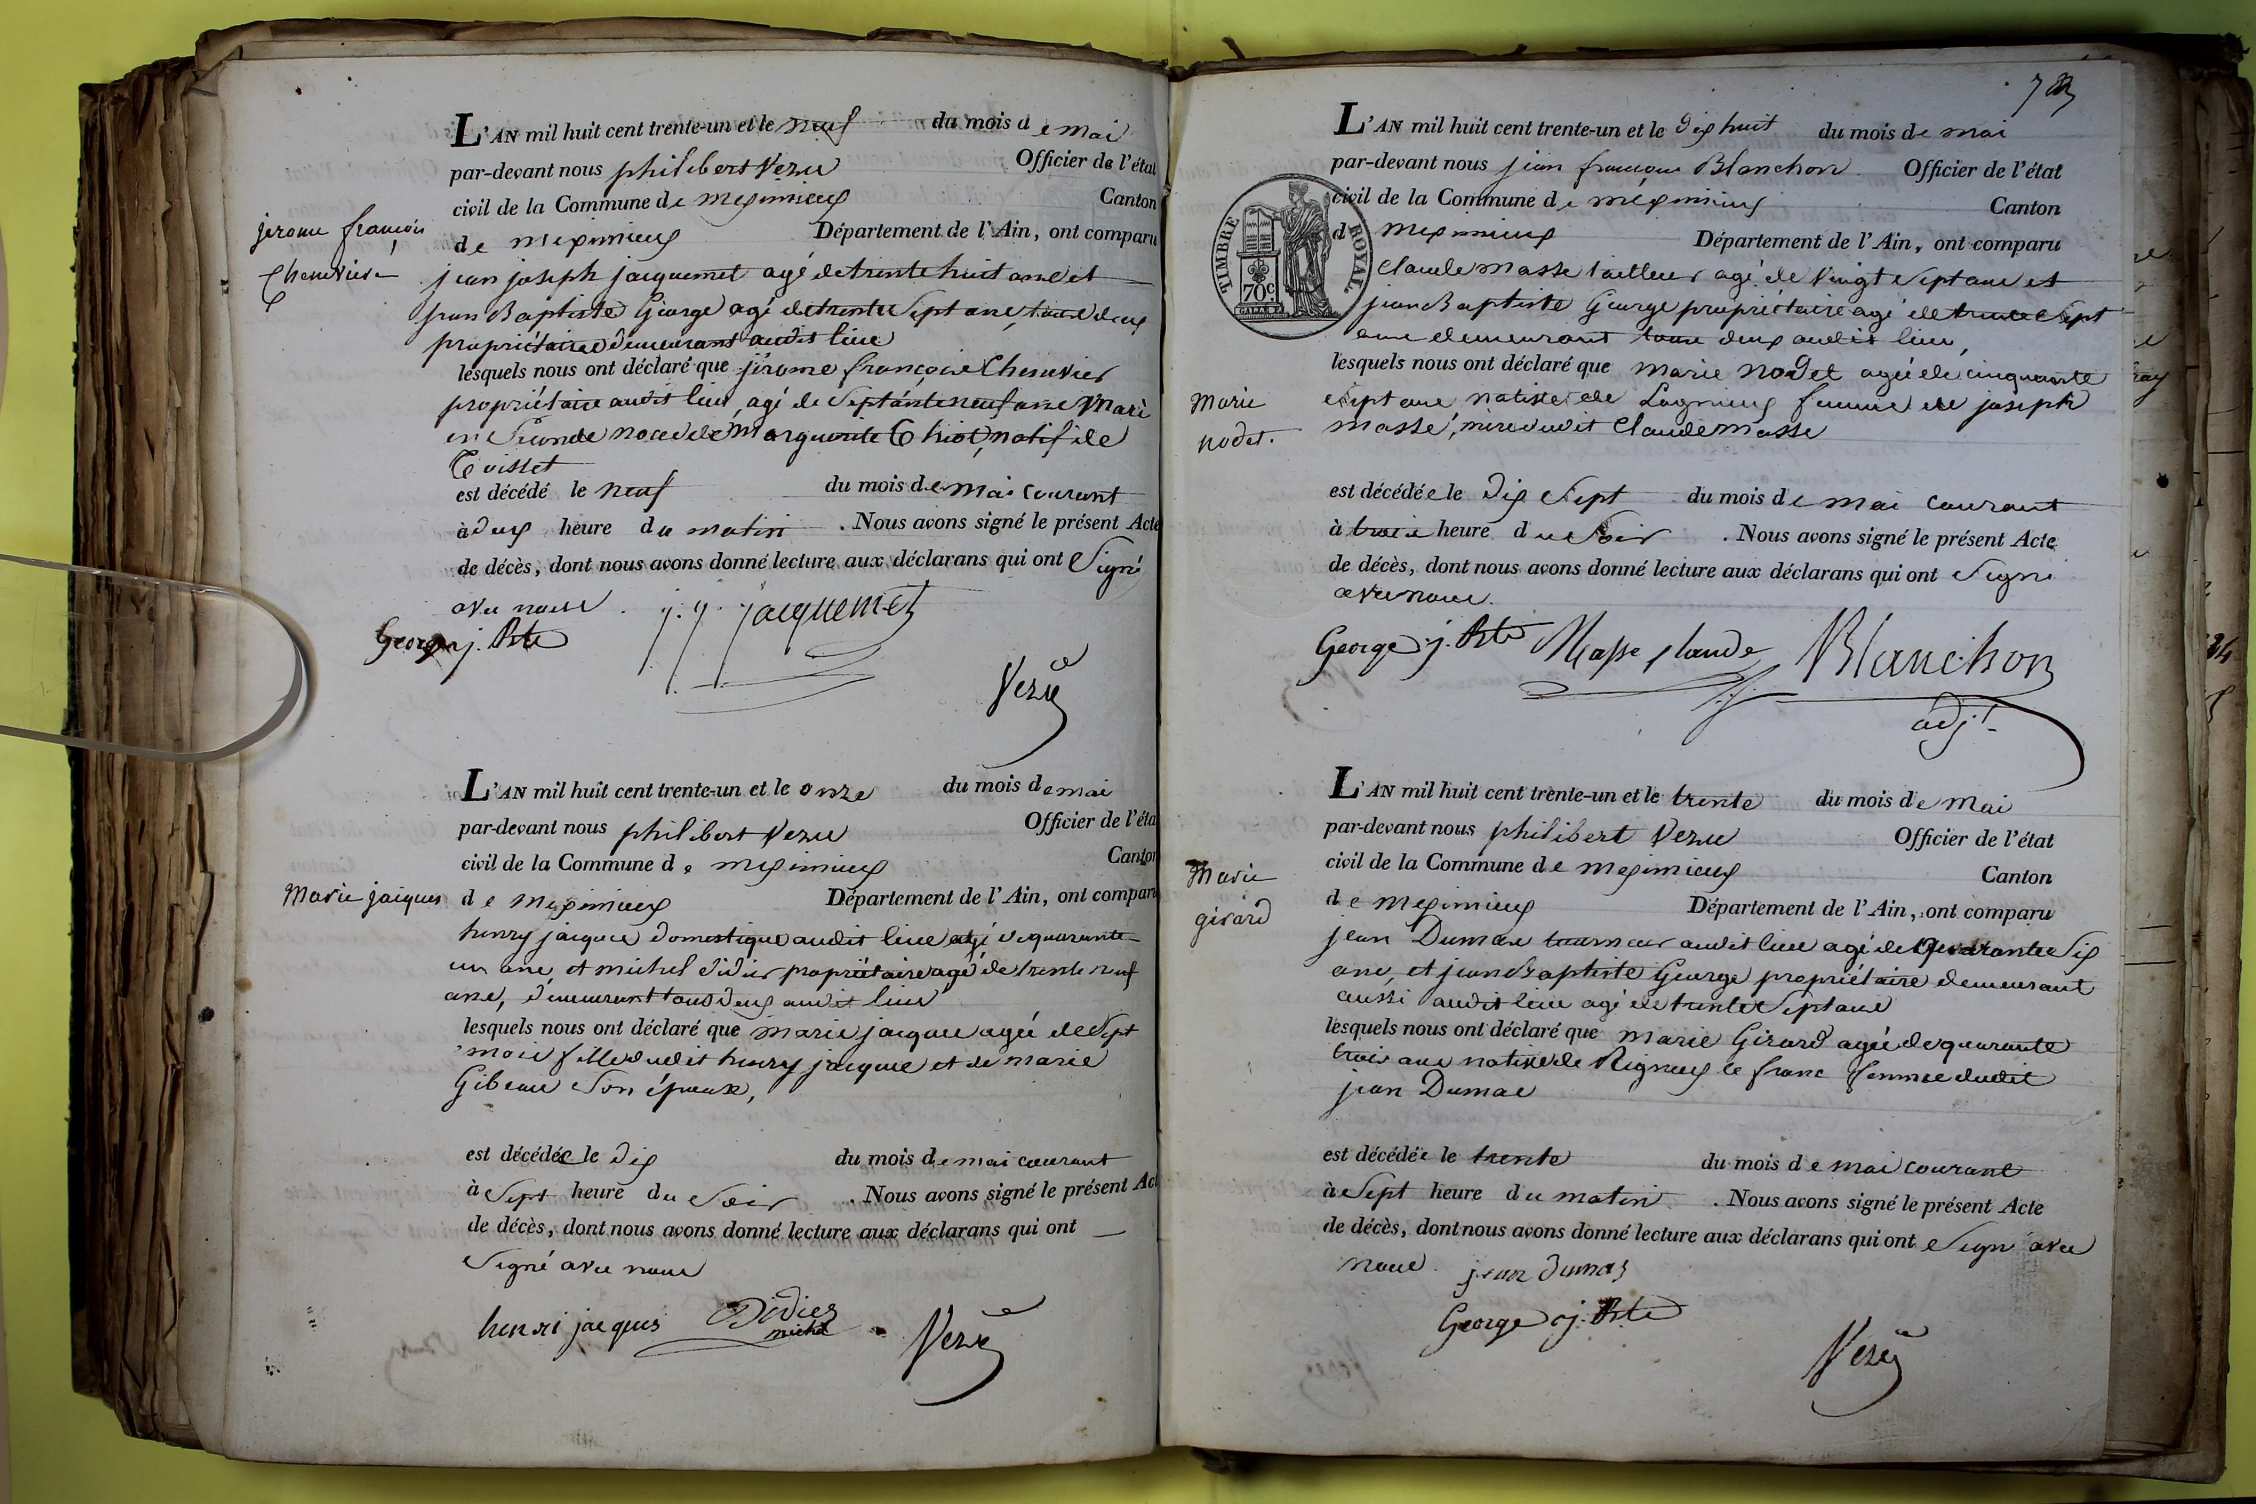 jerome françois
Chenevier
L'AN mil huit cent trente-un et le neuf du mois de mai
par-devant nous philibert Vezu Officier de l'état
civil de la Commune de meximieux Canton
de meximieux Département de l'Ain, ont comparu
jean joseph jacquemet agé de trente huit ans et
jean Baptiste George agé de trente sept ans, tous deux
propriétaires demeurant audit lieu
lesquels nous ont déclaré que jérome françois Chenevier
propriétaire audit lieu, agé de septante neuf ans Mari
en seconde noces de Marguerite Thiot, natif de
Toisset
est décédé le neuf du mois de mai courant
à deux heure du matin . Nous avons signé le présent Acte
de décès, dont nous avons donné lecture aux déclarans qui ont signé
avec nous. j. j. jacquemet
George j. Bte
Vezu
Marie jacques
L'AN mil huit cent trente-un et le onze du mois de mai
par-devant nous philibert Vezu Officier de l'éta
civil de la Commune de meximieux Canton
de meximieux Département de l'Ain, ont comparu
henry jacques domestique audit lieu agé de quarante
un ans, et michel didier propriétaire agé de trente neuf
ans, demeurant tous deux audit lieu
lesquels nous ont déclaré que marie jacques agée de sept
mois fille dudit henry jacques et de marie
Gibeau son épouse,
est décédée le dix du mois de mai courant
à sept heure du soir . Nous avons signé le présent Act
de décès, dont nous avons donné lecture aux déclarans qui ont
signé avec nous
henri jacques Didier michel Vezu
TIMBRE ROYAL
70c.
Marie
nodet.
L'AN mil huit cent trente-un et le dix huit du mois de mai
par-devant nous jean françois Blanchon Officier de l'état
civil de la Commune de meximieux Canton
de meximieux Département de l'Ain, ont comparu
Claude Masse tailleur agé de vingt sept ans et
jean Baptiste George propriétaire agé de trente sept
ans demeurant tous deux audit lieu,
lesquels nous ont déclaré que marie nodet agée de cinquante
sept ans native de Lagnieux femme de joseph
masse, mère dudit Claude masse
est décédée le dix sept du mois de mai courant
à trois heure du soir . Nous avons signé le présent Acte
de décès, dont nous avons donné lecture aux déclarans qui ont signé
avec nous.
George j. Bte Masse claude Blanchon
adjt
Marie
girard
L'AN mil huit cent trente-un et le trente du mois de mai
par-devant nous philibert Vezu Officier de l'état
civil de la Commune de meximieux Canton
de meximieux Département de l'Ain, ont comparu
jean Dumas tourneur audit lieu agé de quarante six
ans, et jean Baptiste George propriétaire demeurant
aussi audit lieu agé de trente sept ans
lesquels nous ont déclaré que marie Girard agée de quarante
trois ans native de Rigneux le franc femme dudit
jean Dumas
est décédée le trente du mois de mai courant
à sept heure du matin . Nous avons signé le présent Acte
de décès, dont nous avons donné lecture aux déclarans qui ont signé avec
nous. jean dumas
George j. Bte
Vezu